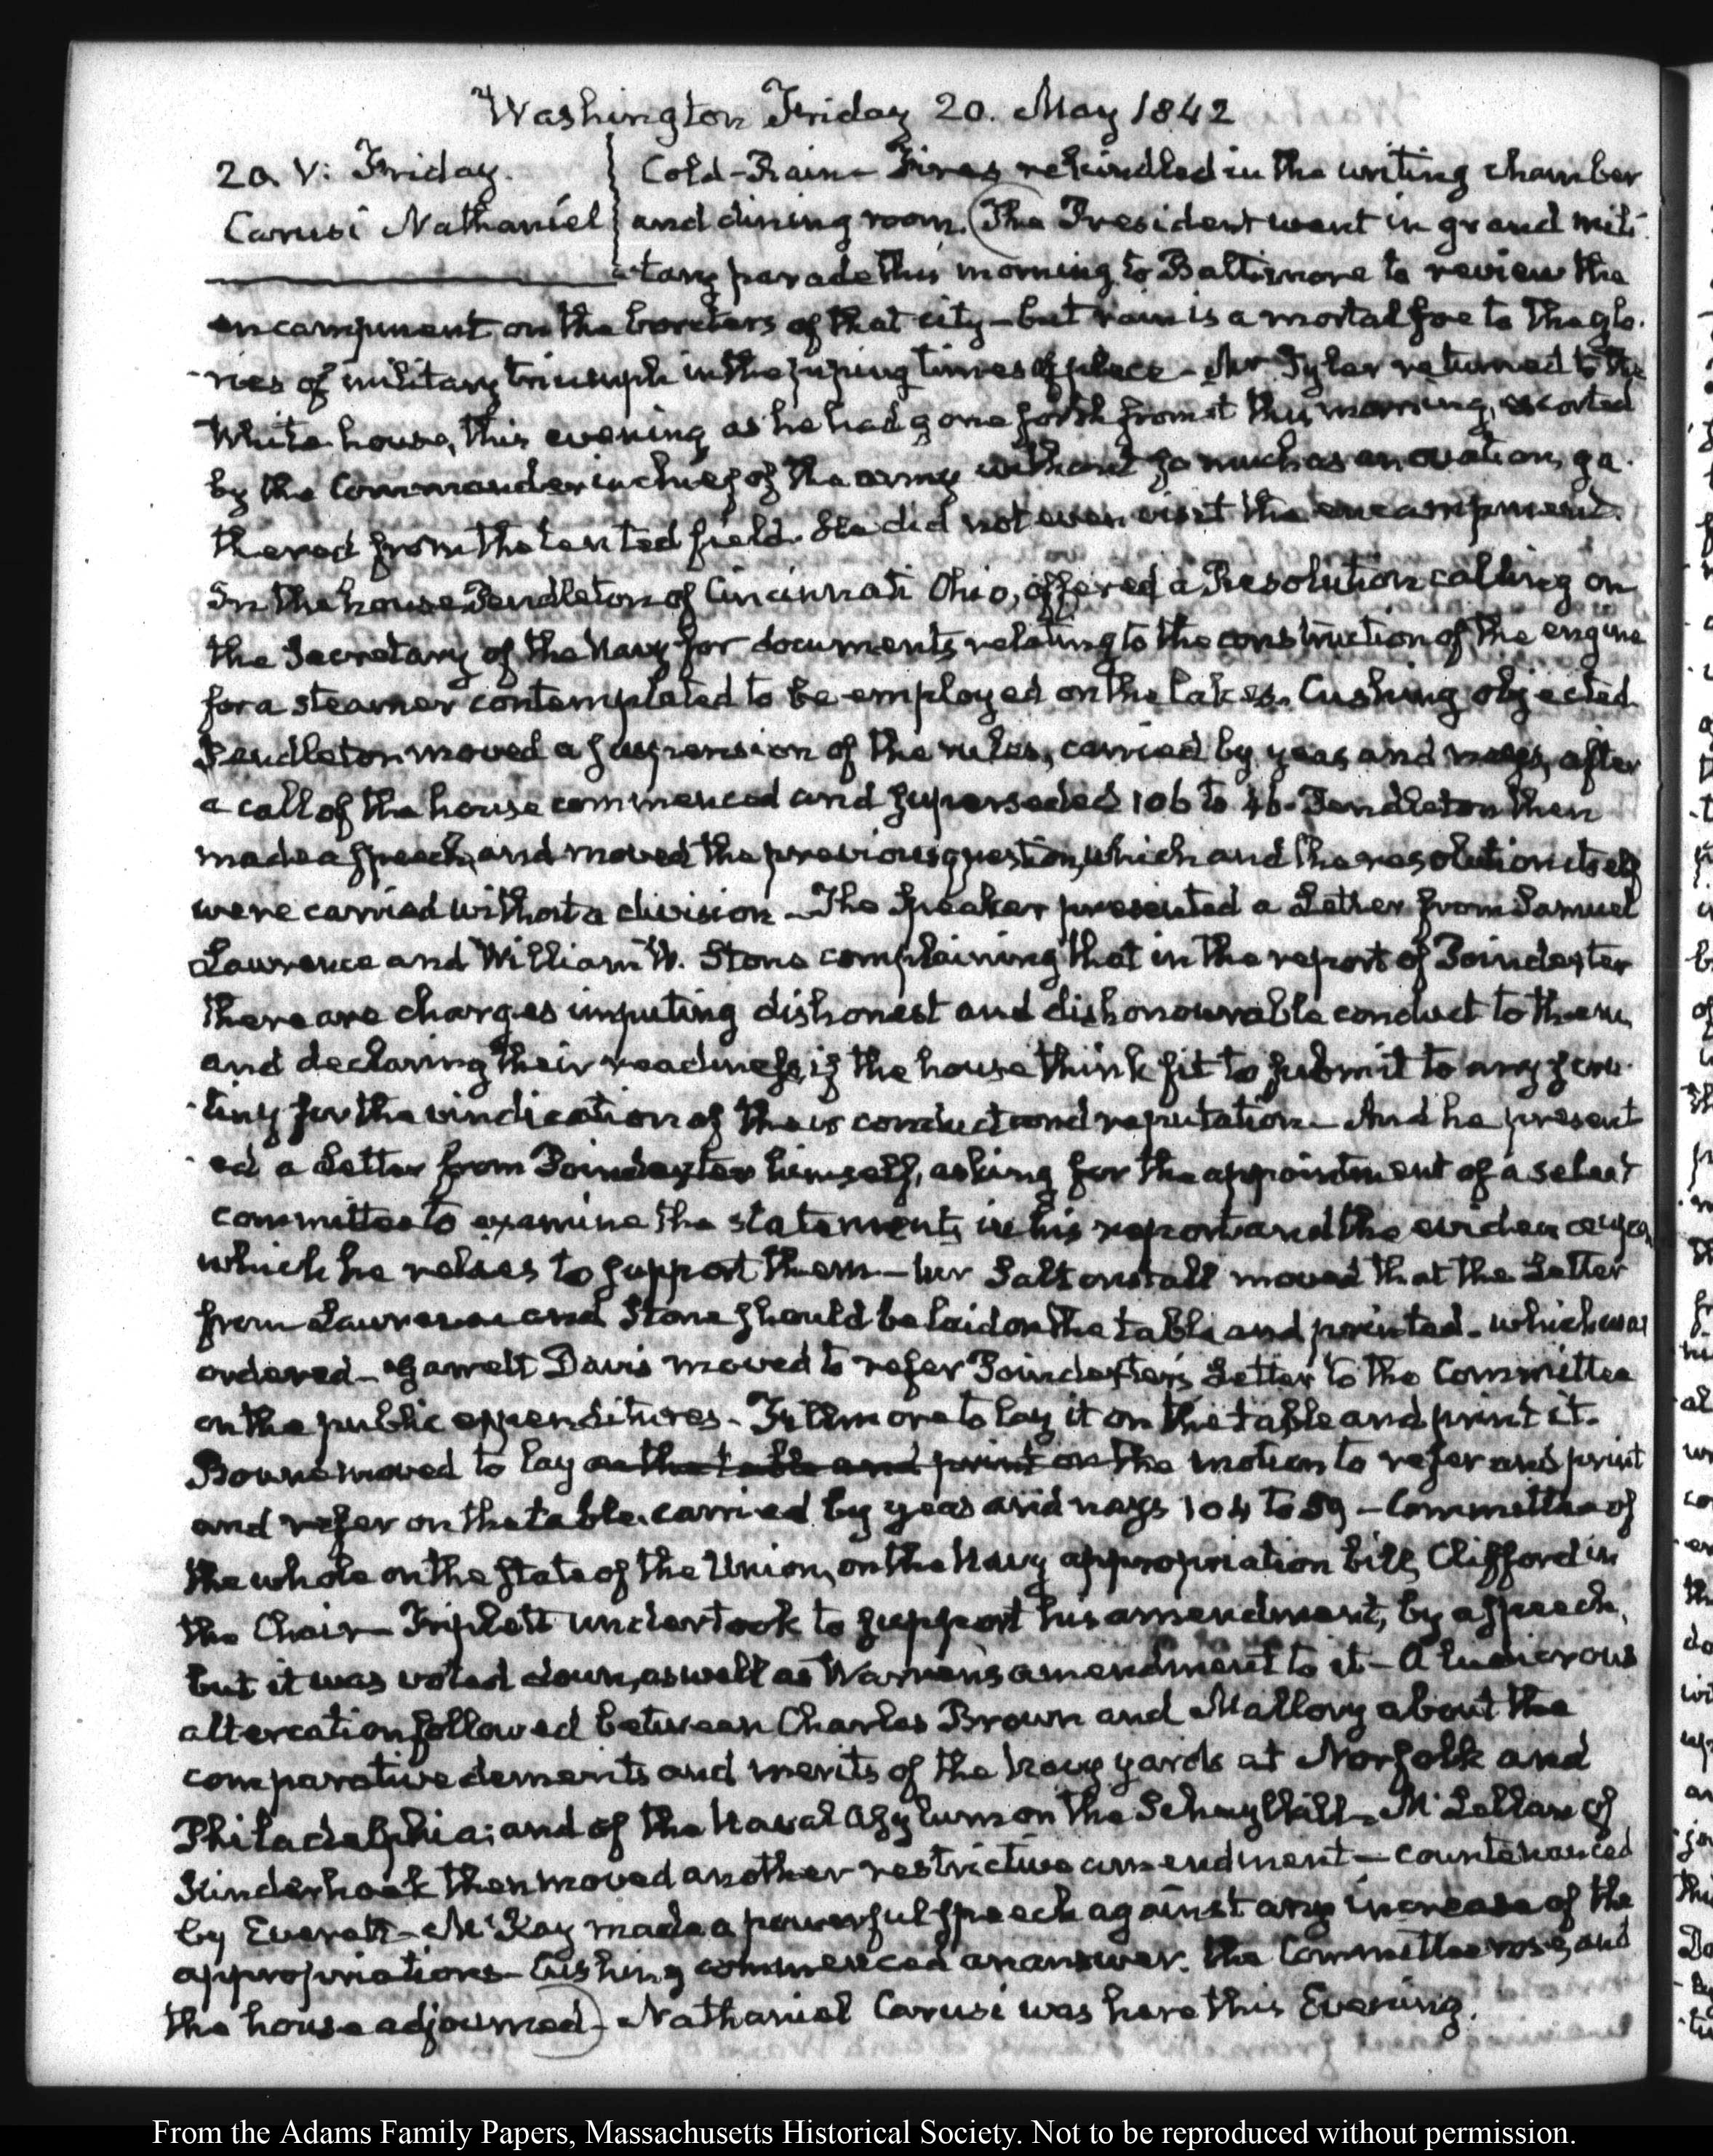 Washington Friday 20. May 1842
20. V: Friday.
Carusi Nathaniel
Cold-Rain- Fires rekindled in the writing chamber
and dining room. The President went in grand mili-
-tary parade this morning to Baltimore to review the
encampment on the borders of that city-but rain is a mortal foe to the glo-
-ries of military triumph in the piping times of peace- Mr Tyler returned to the
White house, this evening as he had gone forth from it this morning, escorted
by the Commander in chief of the army without so much as an ovation, ga-
thered from the tented field. He did not even visit the encampment.
In the house Pendleton of Cincinnati Ohio, offered a Resolution calling on
the Secretary of the Navy for documents relating to the construction of the engine
for a steamer contemplated to be employed on the lakes. Cushing objected.
Pendleton moved a suspension of the rules, carried by yeas and nays, after
a call of the house commenced and superseded 106 to 46. Pendleton then
made a speech, and moved the previous question, which and the resolution itself
were carried without a division- The Speaker presented a Letter from Samuel
Lawrence and William W. Stone complaining that in the report of Poindexter
there are charges imputing dishonest and dishonourable conduct to them,
and declaring their readiness, if the house think fit to submit to any scru-
-tiny for the vindication of their conduct and reputation- And he present
-ed a Letter from Poindexter himself, asking for the appointment of a select
committee to examine the statements in his report and the evidence upon
which he relies to support them- Mr Saltonstall moved that the Letter
from Lawrence and Stone should be laid on the table and printed- which was
ordered- Garrett Davis moved to refer Poindexter's Letter to the Committee
on the public expenditures- Fillmore to lay it on the table and print it.
Bowne moved to lay on the table and print on the motion to refer and print
and refer on the table. carried by yeas and nays 104 to 59 - Committee of
the whole on the state of the Union, on the Navy appropriation bill, Clifford in
the Chair- Triplett undertook to support his amendment, by a speech,
but it was voted down, as well as Warren's amendment to it- A ludicrous
altercation followed between Charles Brown and Mallory about the
comparative demerits and merits of the Navy yards at Norfolk and
Philadelphia; and of the Naval Asylum on the Schuylkill- McLellan of
Kinderhook then moved another restrictive amendment- countenanced
by Everett- McKay made a powerful speech against any increase of the
appropriations- Cushing commenced an answer. the Committee rose, and
the house adjourned- Nathaniel Carusi was here this Evening.
From the Adams Family Papers, Massachusetts Historical Society. Not to be reproduced without permission.